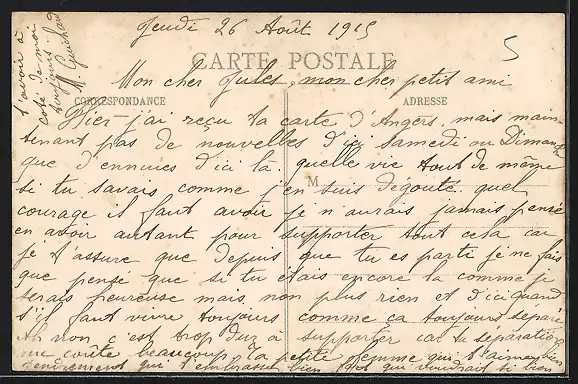 Jeudi 26 Août 1915
5
CARTE POSTALE
Mon cher Jules, mon cher petit ami
CORRESPONDANCE
ADRESSE
Hier j'ai reçu ta carte d'Angers, mais main-
tenant pas de nouvelles d'ici Samedi ou Dimanche
que d'ennuies d'ici la. quelle vie tout de même
M
si tu savais comme j'en suis dégouté quel
courage il faut avoir je n'aurais jamais pensé
en avoir autant pour supporter tout cela car
je t'assure que depuis que tu es parti je ne fais
que pensé que si tu étais encore la comme je
serais heureuse mais non plus rien et d'ici quand
s'il faut vivre toujours comme ca toujours séparé
Ah non c'est trop dur à supporter car la séparation
me coûte beaucoup Ta petite femme qui t'aime bien
tendrement qui t'embrasse bien fort qui voudrait si bien
t'avoir à
coté de moi
toujours
M.